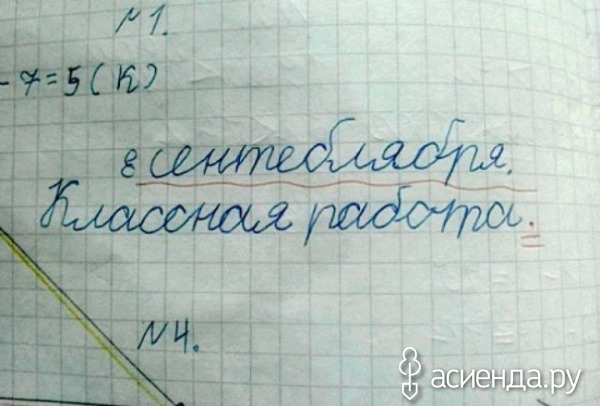 №1.
- 7=5(К)
8 сентеблября.
Классная работа.
№4.
асиенда.ру